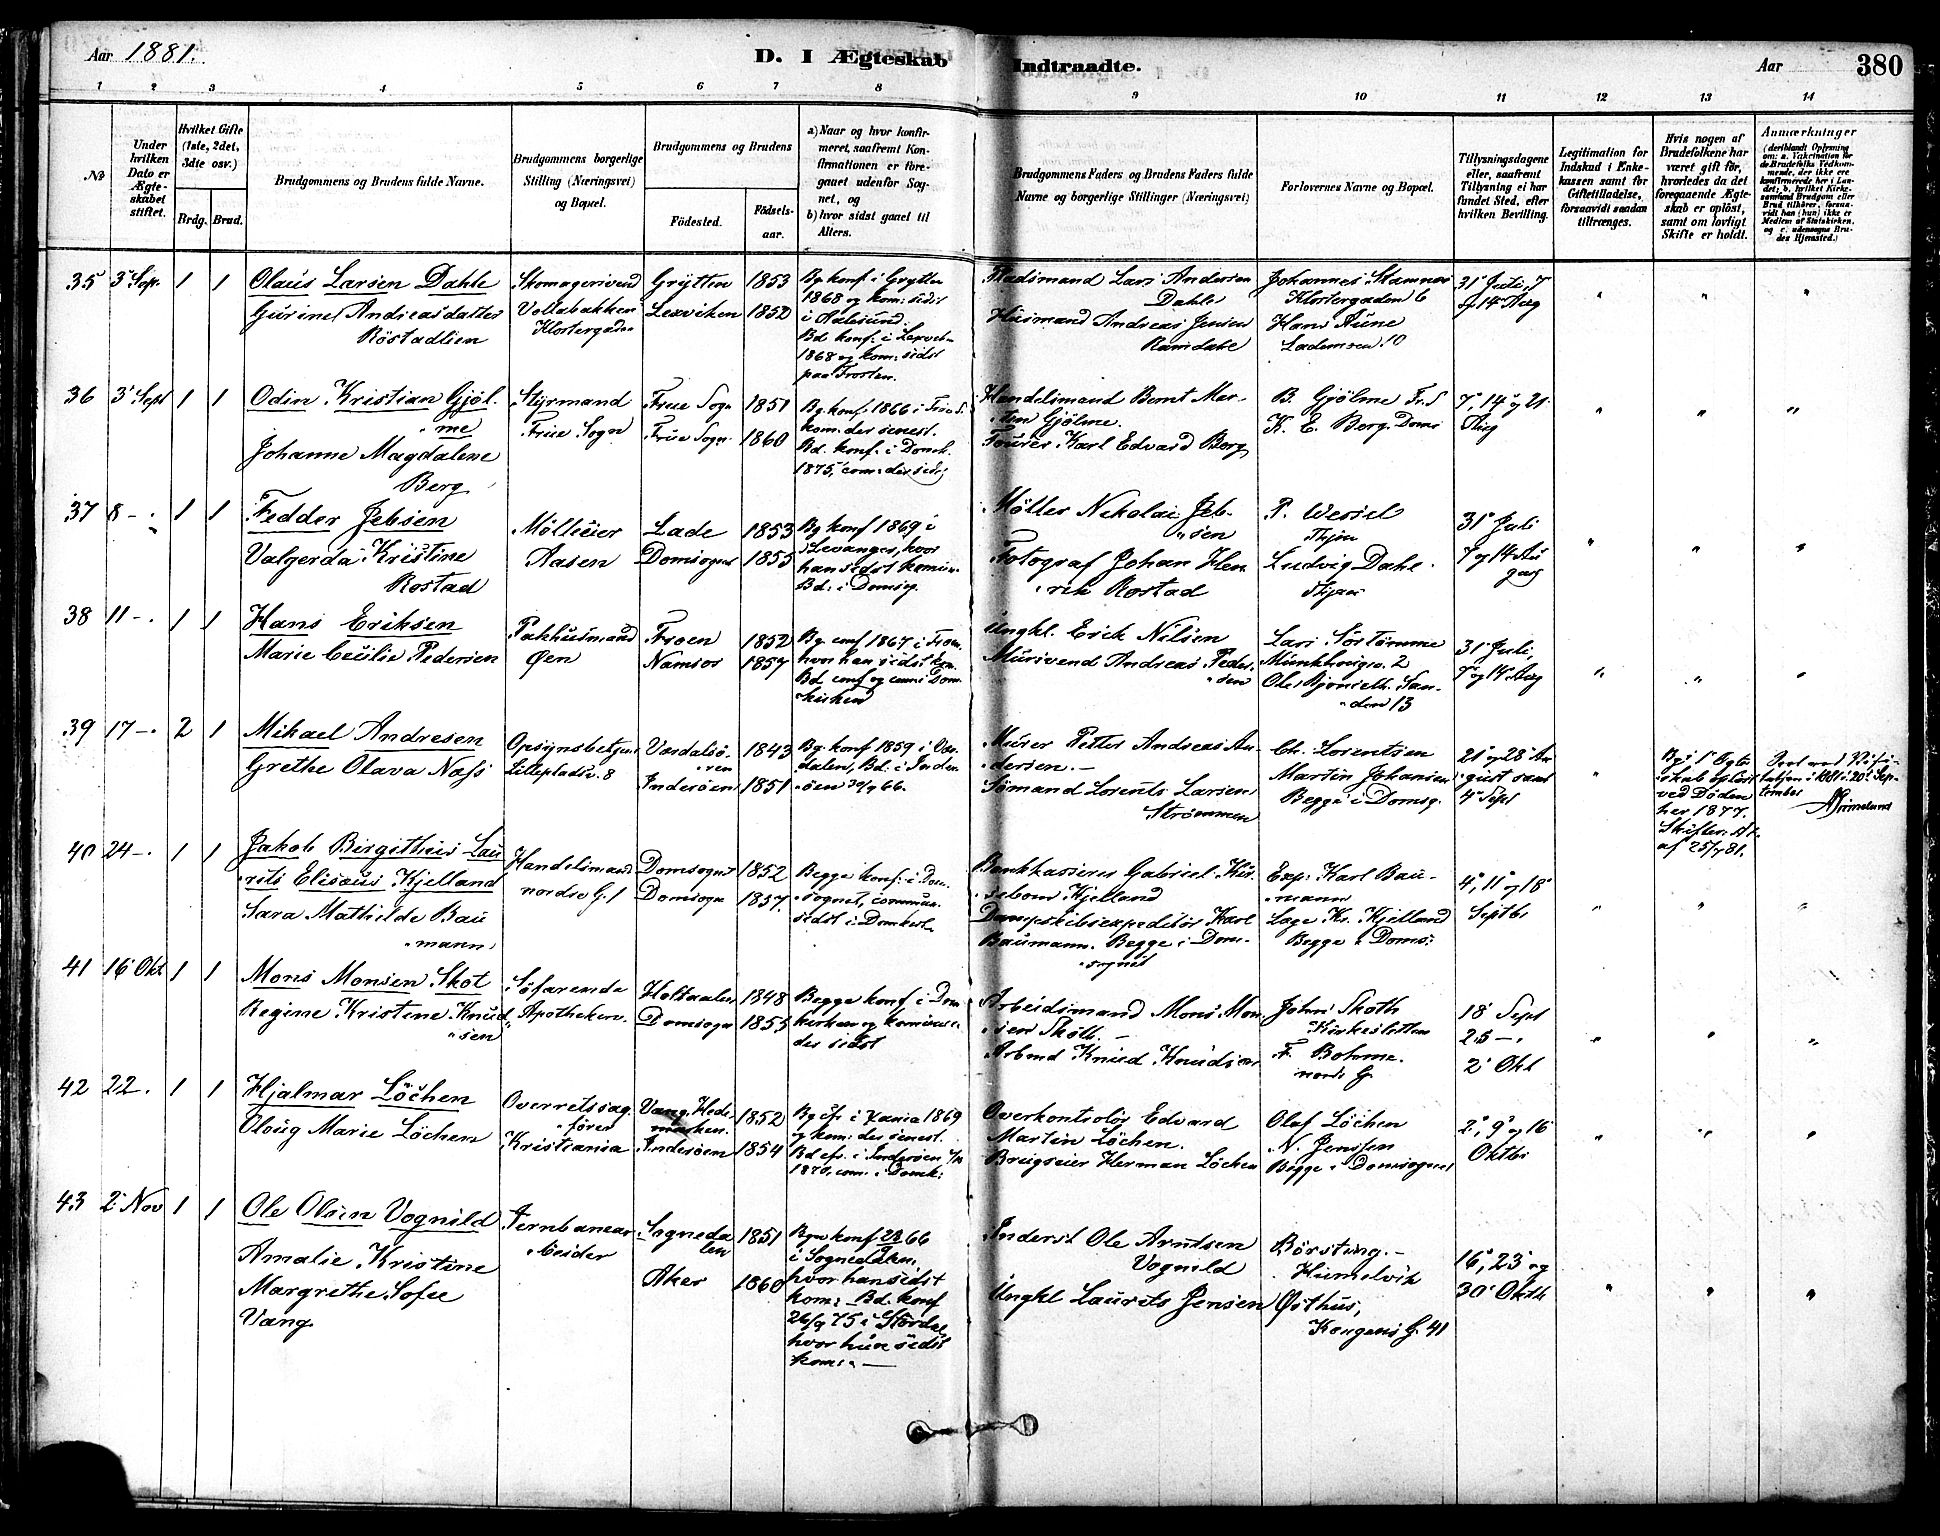 Aar 1881.
D. I Ægteskab Indtraadte.
Aar
380
1 2 3 4 5 6 7 8 9 10 11 12 13 14
№
Under hvilken Dato er Ægteskabet stiftet.
Hvilket Gifte (1ste, 2det, 3die osv.)
Brdg. Brud.
Brudgommens og Brudens fulde Navne.
Brudgommens borgerlige Stilling (Næringsvei) og Bopæl.
Brudgommens og Brudens
Födested.
Födsels-aar.
a) Naar og hvor konfirmeret, saafremt Konfirmationen er foregaaet udenfor Sognet, og
b) hvor sidst gaaet til Alters.
Brudgommens Faders og Brudens Faders fulde Navne og borgerlige Stillinger (Næringsvei)
Forlovernes Navne og Bopæl.
Tillysningsdagene eller, saafremt Tillysning ei har fundet Sted, efter hvilken Bevilling.
Legitimation for Indskud i Enkekassen samt for Giftetilladelse, forsaavidt saadan tiltrænges.
Hvis nogen af Brudefolkene har været gift før, hvorledes da det foregaaende Ægteskab er oplöst, samt om lovligt Skifte er holdt.
Anmærkninger
35 3 Sep. 1 1
Olaus Larsen Dahle
Gurine Andreasdatter
Röstadlien
Skomagersvend
Vollabakken
Klostergaden
Grytten 1853
Lexviken 1852
Bg konf. i Grytten
1868 og kom: sidst
i Aalesund.
Bd konf: i Lexvik
1868 og kom: sidst
paa Frosten.
Lars Andersen
Dahle
Husmand Andreas Jensen
Ramdahl
Johannes Stamnes
Klostergaden 6
Hans Aune
Lademoen 10
31 Juli, 7
og 14 Aug
36 3 Sept 1 1
Odin Kristian Gjöl-
me
Johanne Magdalene
Berg
Styrmand
Frue Sogn
Frue Sogn 1851
Frue Sogn 1860
Bg konf: 1866 i Frue S.
kom: der senest.
Bd. konf: i Domk.
1875, com: der sidst
Handelsmand Bernt Mar-
tin Gjölme.
Karl Edvard Berg
B. Gjölme Fr. S
K. E. Berg Doms
7, 14 og 21
Aug
37 8 - 1 1
Fedder Jebsen
Valgerda Kristine
Rostad
Mölleier
Aasen
Lade 1853
Domsognet 1855
Bg konf 1869 i
Levanger, hvor
han sidst komm.
Bd: i Domsog.
Möller Nikolai Jeb-
sen
Fotograf Johan Hen-
rik Rostad
P. Wessel
Thjem
Ludvig Dahl
Thjem
31 Juli
7 og 14 Au
gust
38 11 - 1 1
Hans Eriksen
Marie Cecilie Pedersen
Pakhusmand
Øen
Froen 1852
Namsos 1857
Bg conf 1867 i Froen
hvor han sidst kom.
Bd conf og com: i Dom
kirken
Ungkl. Erick Nilsen
Mursvend Andreas Peder-
sen
Lars Sörtömme
Munkhaugv. 2
Ole Bjönseth San-
den 13
31 Juli,
7 og 14 Aug
39 17 - 2 1
Mikael Andresen
Grethe Olava Næss
Opsynsbetjent
Lillepladsv. 8
Værdalsö-
ren 1843
Inderöen 1851
Bg. konf 1859 i Vær
dalen, Bd. i Inder
öen 30/9 66.
Murer Petter Andreas An-
dersen.
Sömand Lorents Larsen
Strömmen
Ch. Lorentsen
Martin Johansen
Begge i Domsg.
21 og 28 Au
gust samt
4 Sept
Bg i 1 Ægte
skab oplöst
ved Döden
her 1877.
Skifter. At.
af 25/7 81.
i 1881 i 20 Sep-
tember
40 24 - 1 1
Jakob Birgithus Lau
rits Elisæus Kjelland
Sara Mathilde Bau
mann
Handelsmand
nordre G. 1
Domsognet 1852
Domsogn 1857.
Begge konf: i Dom-
sognet, commun.
sidst i Domkirk.
Bankkasserer Gabriel Kir-
sebom Kjelland
Dampskibsexpeditör Karl
Baumann. Begge i Dom-
sognet
Exp: Karl Bau-
mann
Lage Kr. Kjelland
Begge i Doms:
4, 11 og 18
Septbr
41 16 Okt 1 1
Mons Monsen Skot
Regine Kristine Knud
sen
Söfarende
Apotheker
Holtaalen 1848
Domsogn 1855
Begge konf i Dom
kirken og kommune
des sidst
Arbeidsmand Mons Mon-
sen Skott.
Arbmd Knud Knudsen
John Skoth
Kirkesletten
F. Bohme.
nordr G.
18 Sept
25 -
2 Okt
42 22. 1 1
Hjalmar Löchen
Oloug Marie Löchen
Overretssag-
förer
Kristiania
Vang, Hede-
marken. 1852
Inderöen 1854
Bg cfr. i Xania 1869
og kom: der senest.
Bd cfr. i Inderöen
1870, com: i Domk:
Overkontrolör Edvard
Martin Löchen.
Brugseier Herman Löchen
Olaf Löchen
N. Jenssen
Begge i Domsognet
2, 9 og 16
Oktbr
43 2 Nov 1 1
Ole Olsen Vognild
Amalie Kristine
Margrethe Sofie
Vang
Jernbanear
beider
Sogneda
len 1851
Aker 1860
Bgm konf 66
i Sognedalen,
hvor han sidst
kom: Bd. konf
26/9 75 i Störda
hvor hun sidst
kom:
Inderst Ole Arntsen
Vognild
Ungkl Laurits Jensen
Börsting.
Humelvik
Østhus,
Kongens G. 41
16, 23 og
30 Oktb